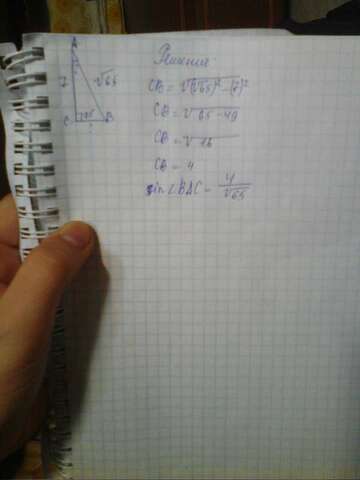 A
7 √65
C 90° B
?
Решение
CB = √(√65)² - (7)²
CB = √65 - 49
CB = √16
CB = 4
sin ∠BAC = 4/√65